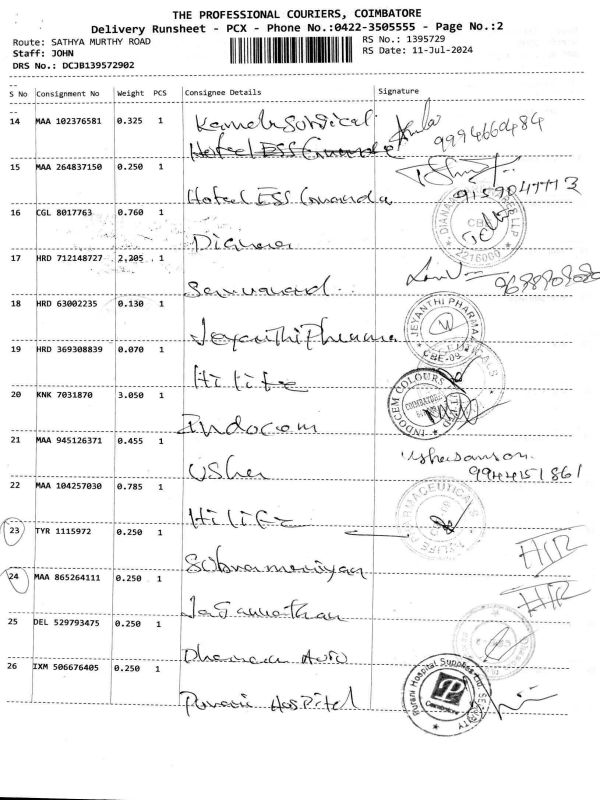 THE PROFESSIONAL COURIERS, COIMBATORE
Delivery Runsheet - PCX - Phone No.:0422-3505555 - Page No.:2
Route: SATHYA MURTHY ROAD
RS No.: 1395729
Staff: JOHN
RS Date: 11-Jul-2024
DRS No.: DCJB139572902
S No Consignment No Weight PCS Consignee Details Signature
14 MAA 102376581 0.325 1
Hotel ESS Grande
9994660484
15 MAA 264837150 0.250 1 Hotel ESS Grande
16 CGL 8017763 0.760 1 Dianera
2216000
17 HRD 712148727 2.205 1
18 HRD 63002235 0.130 1 Jeyanthi Pharma
JEYANTHI PHARMA
CBE-09
19 HRD 369308839 0.070 1 Hilife
20 KNK 7031870 3.050 1 Indocem
INDOCEM COLOURS
COIMBATORE
21 MAA 945126371 0.455 1 Usha
9944451861
22 MAA 104257030 0.785 1 Hilife
23 TYR 1115972 0.250 1 Subramaniyan
24 MAA 865264111 0.250 1 Jaganathan
25 DEL 529793475 0.250 1 Auto
26 IXM 506676405 0.250 1 Purani Hospital
Purani Hospital Supplies
SECURITY
Coimbatore